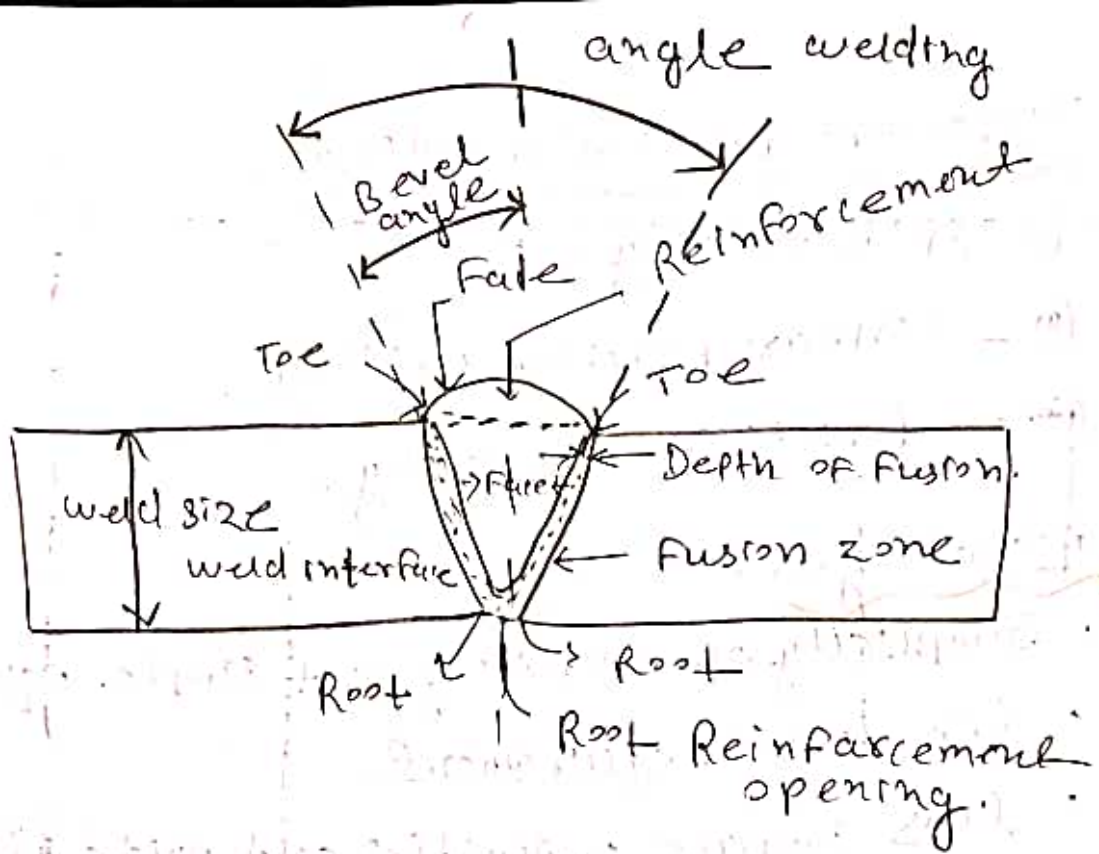 angle welding
Bevel
angle
Reinforcement
Fale
Toe
Toe
Depth of Fusion.
→Face←
weld size
weld interface
Fusion zone
Root
Root
Root Reinfarcement
opening.